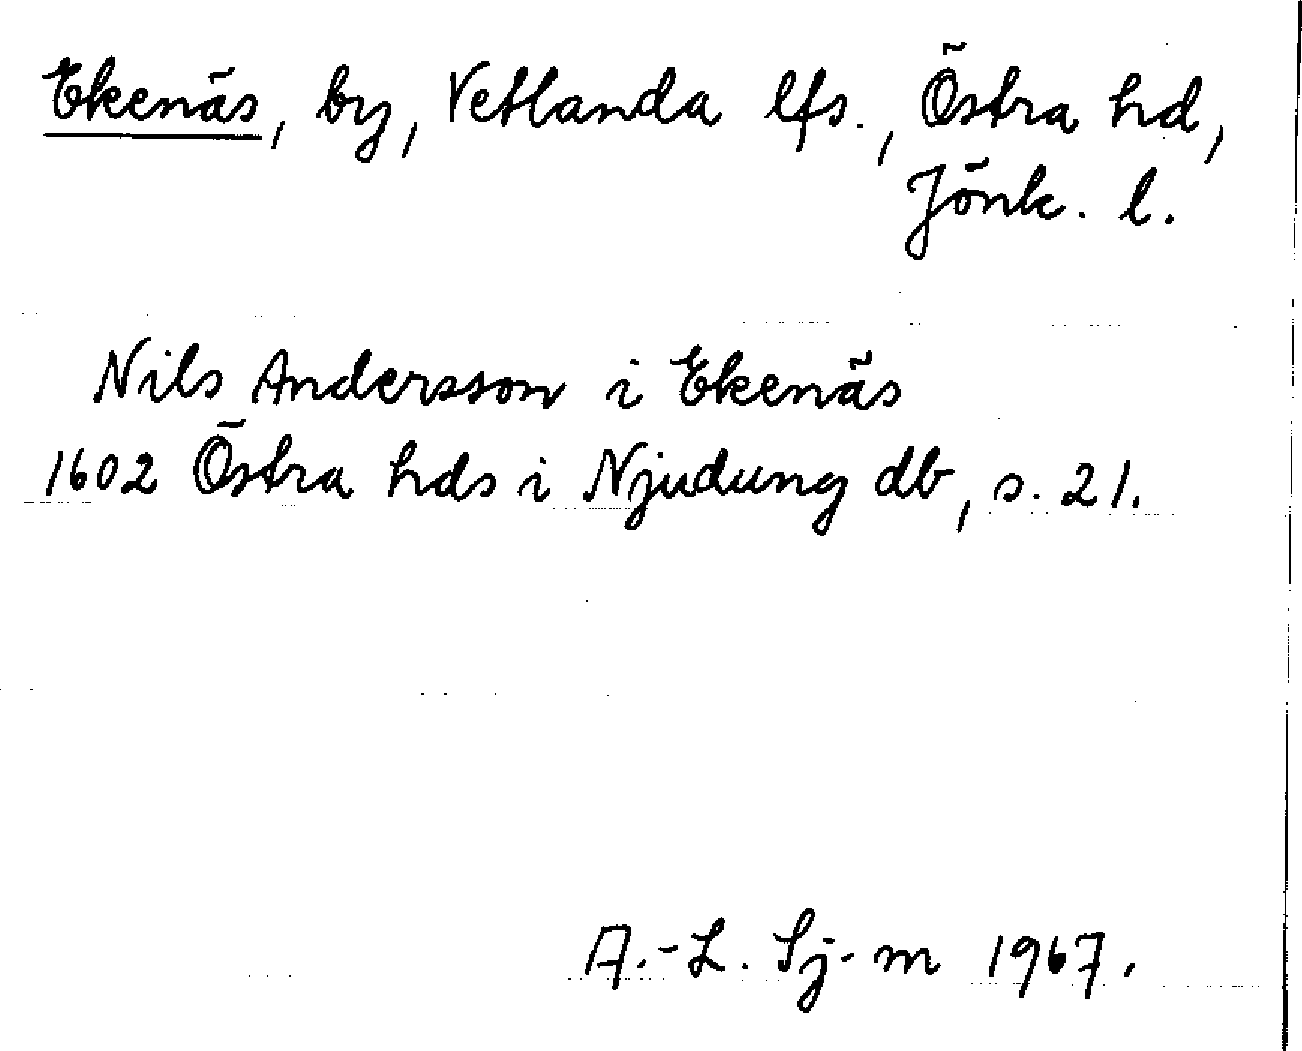 Ekenäs, by, Vetlanda lfs., Östra hd,
Jönk. l.
Nils Andersson i Ekenäs
1602 Östra hds i Njudung db, s. 21.
A.-L. Sj-m 1967.